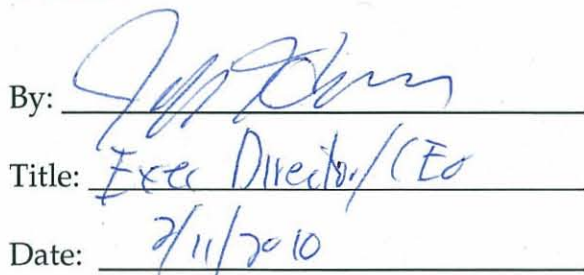 By:
Title: Exec Director/CEO
Date: 2/11/2010